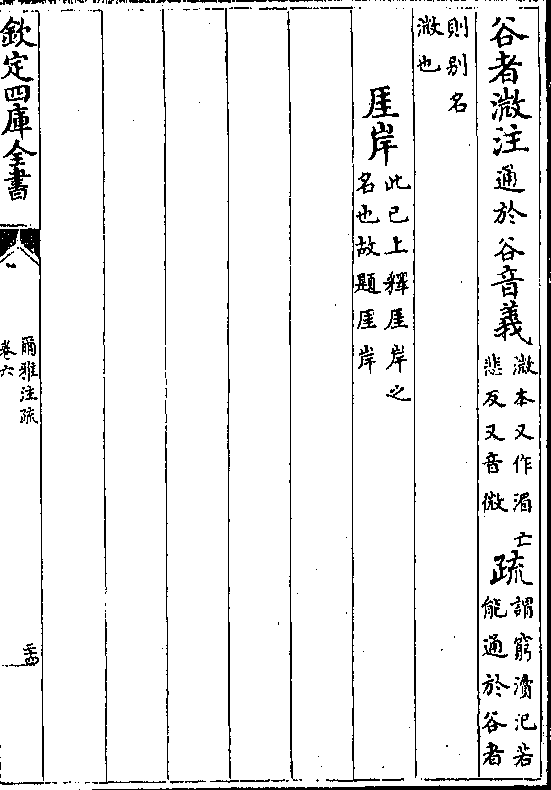 谷者溦注通於谷音義溦本又作湄亡悲反又音微疏謂窮瀆氾若能通於谷者
則别名溦也
厓岸此已上釋厓岸之名也故題厓岸
欽定四庫全書
爾雅注疏
卷六